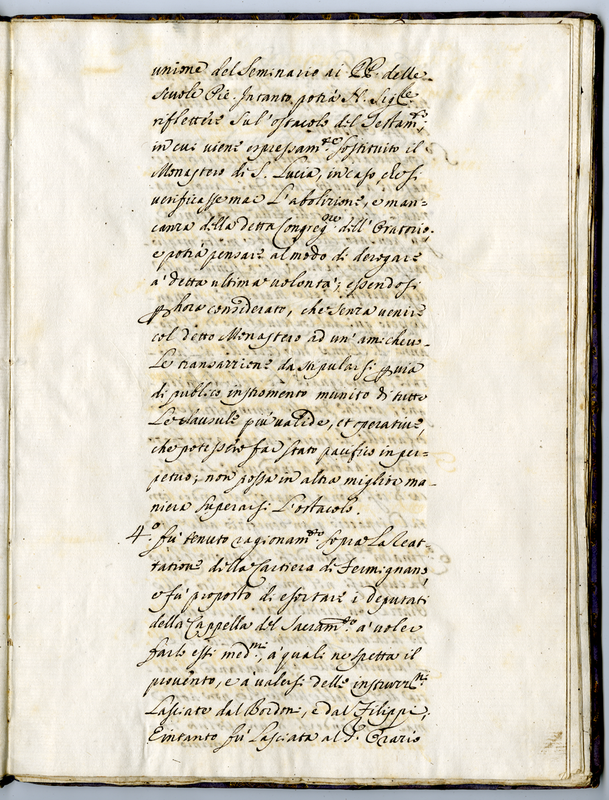 unione del Seminario ai PP. delle
Scuole Pie. Intanto potrà N. Sig.re
riflettere sul'ostacolo del Testam.to,
in cui viene espressam.te sostituito il
Monastero di S. Lucia, in caso, che si
verificasse mai L'abolizione, e man=
canza della detta Congreg.ne dell'Oratorio,
e potrà pensare al modo di derogare
a' detta ultima volontà; essendosi
p hora considerato, che senza venire
col detto Monastero ad un'amichevo=
le transazzione da stipularsi p via
di publico instromento munito di tutte
Le clausule più valide, et operative,
che potessero far stato pacifico in per=
petuo; non possa in altra miglior ma=
niera superarsi L'ostacolo.
4.o fù tenuto ragionam.to sopra La reat=
tatione della Cartiera di Fermignano,
e fù proposto di esortare i deputati
della Cappella del Sacram.to a' voler
farlo essi med.mi, a' quali ne spetta il
provento, e a valersi delle instruzz.ni
Lasciate dal Bordoni, e dal Filippi,
E intanto fù Lasciata al S. Orario